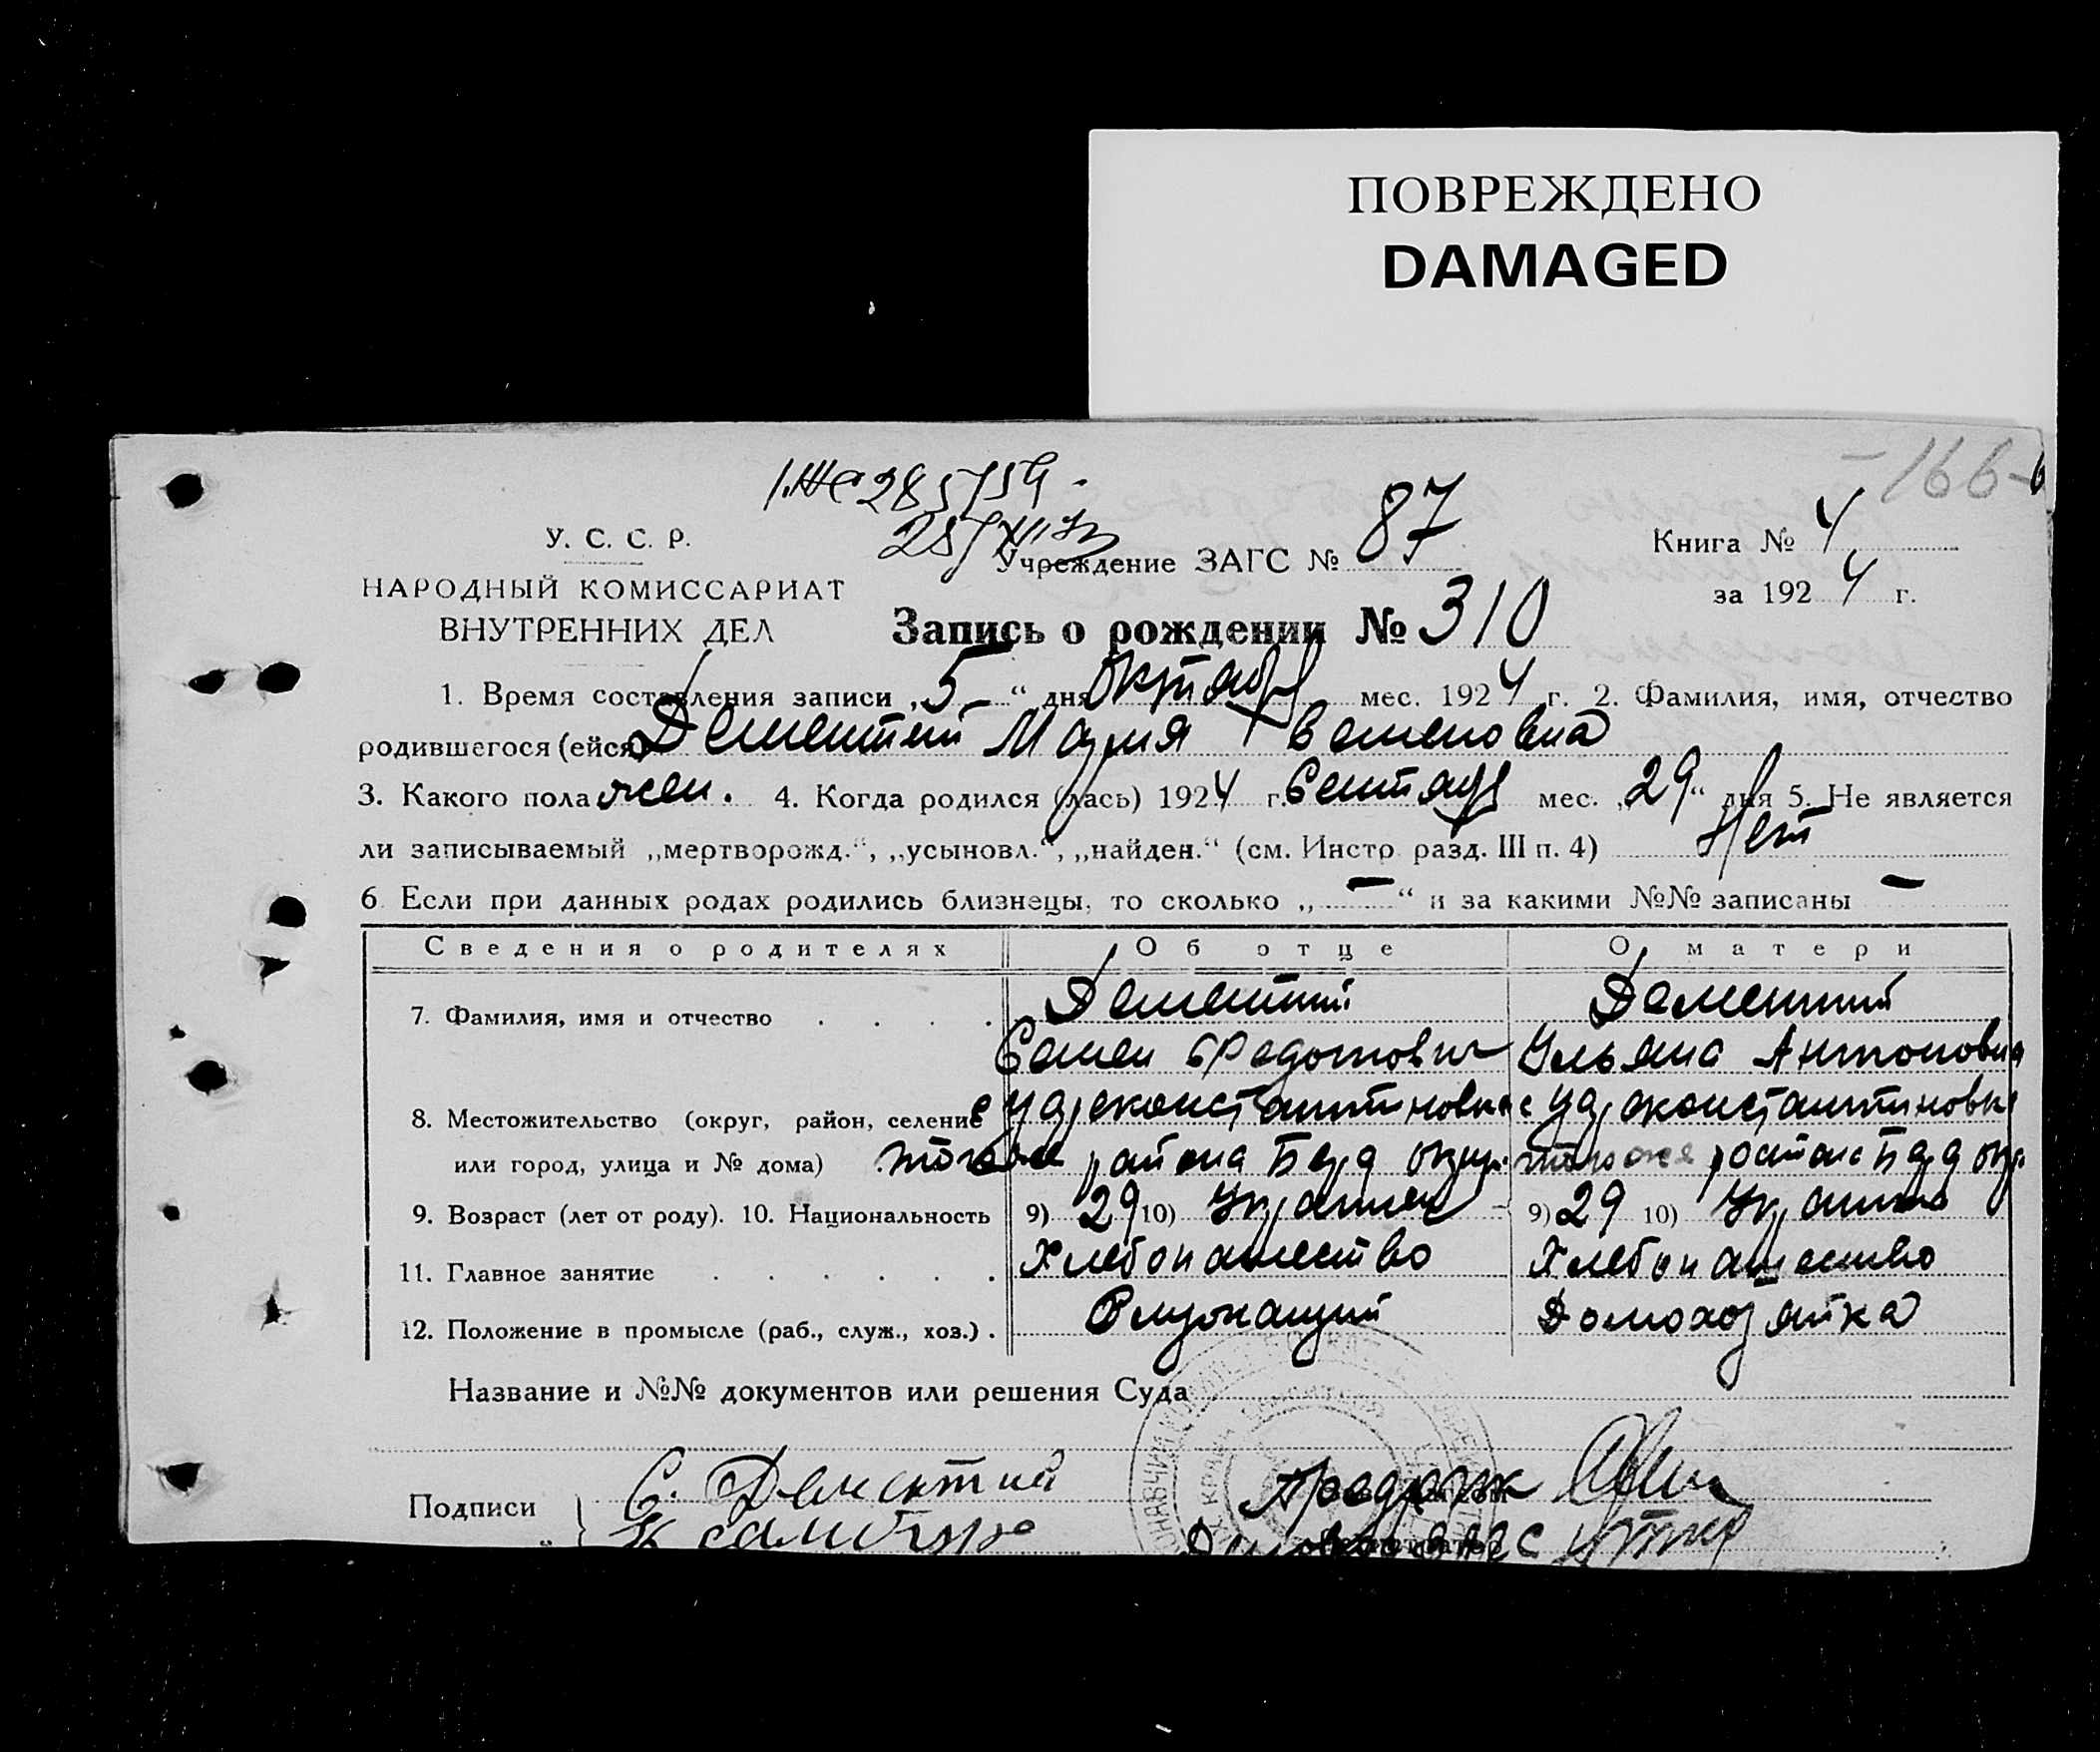 ПОВРЕЖДЕНО
DAMAGED
166
У. С. С. Р.
НАРОДНЫЙ КОМИССАРИАТ
ВНУТРЕННИХ ДЕЛ
Учреждение ЗАГС № 87
Книга № 4
за 1924 г.
Запись о рождении № 310
1. Время составления записи „5“ дня октяб мес. 1924 г. 2. Фамилия, имя, отчество
родившегося (ейся) Дементий Мария Семеновна
3. Какого пола жен. 4. Когда родился (лась) 1924 г. Сентябр мес. „29“ дня 5. Не является
ли записываемый „мертворожд.“, „усыновл.“, „найден.“ (см. Инстр. разд. III п. 4) Нет
6. Если при данных родах родились близнецы, то сколько „—“ и за какими №№ записаны —
Сведения о родителях Об отце О матери
7. Фамилия, имя и отчество . . . . Дементий Дементий
Семен Федотович Ульяна Антоновна
8. Местожительство (округ, район, селение
или город, улица и № дома) того же района Берд окр. того же района Берд окр.
9. Возраст (лет от роду). 10. Национальность 9) 29 10) Украинец 9) 29 10)
11. Главное занятие . . . . . . Хлебопашество Хлебопашество
12. Положение в промысле (раб., служ., хоз.) . Служащий Домохозяйка
Название и №№ документов или решения Суда
Подписи С. Дементий